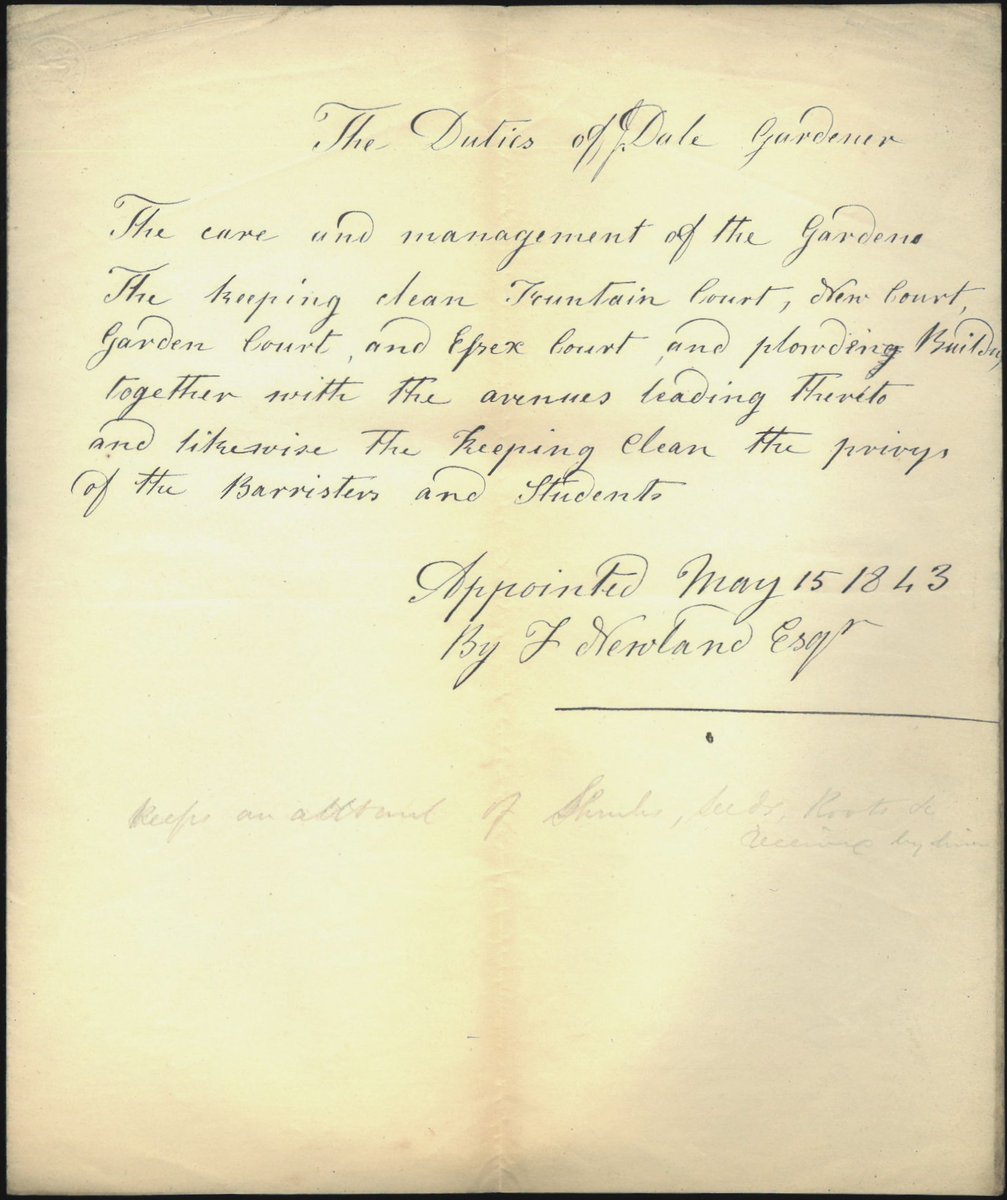 The Duties of J. Dale Gardener
The care and management of the Gardens
The keeping clean Fountain Court, New Court,
Garden Court, and Essex Court, and plowding Buildg,
together with the avenues leading thereto
and likewise the keeping clean the privys
of the Barristers and Students
Appointed May 15 1843
By J Newland Esqr
keeps an account of Shrubs, Seeds, Roots &c
received by him